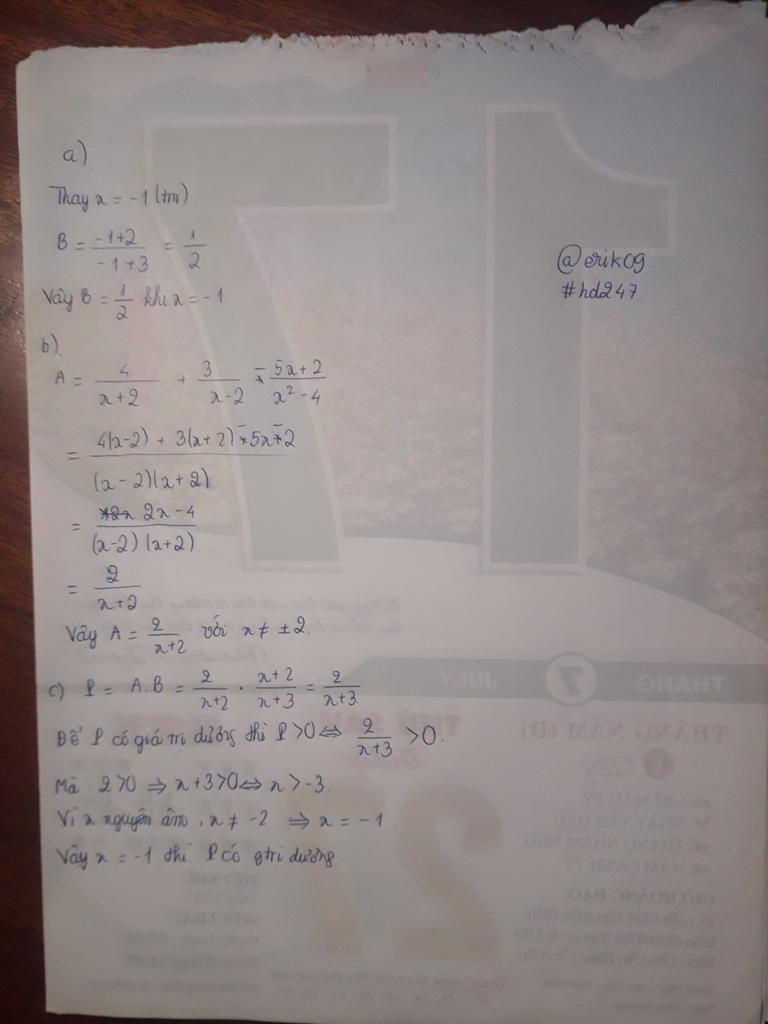 a)
Thay x = -1 (tm)
B = \frac{-1+2}{-1+3} = \frac{1}{2}
@erik09
#hd247
Vậy B = \frac{1}{2} khi x = -1
b).
A = \frac{4}{x+2} + \frac{3}{x-2} - \frac{5x+2}{x^2-4}
= \frac{4(x-2) + 3(x+2) - 5x - 2}{(x-2)(x+2)}
= \frac{2x-4}{(x-2)(x+2)}
= \frac{2}{x+2}
Vậy A = \frac{2}{x+2} với x ≠ ±2.
c) P = A.B = \frac{2}{x+2} . \frac{x+2}{x+3} = \frac{2}{x+3}
Để P có giá trị dương thì P >0 ⇔ \frac{2}{x+3} >0.
Mà 2>0 ⇒ x+3>0 ⇔ x > -3.
Vì x nguyên âm, x ≠ -2 ⇒ x = -1
Vậy x = -1 thì P có gtrị dương
THÁNG 7 JULY
THÁNG NĂM (Đ)
GIỜ MẬU TÝ
NGÀY TÂN DẬU
THÁNG NHÂM NGỌ
NĂM CANH TÝ
GIỜ HOÀNG ĐẠO
17
27